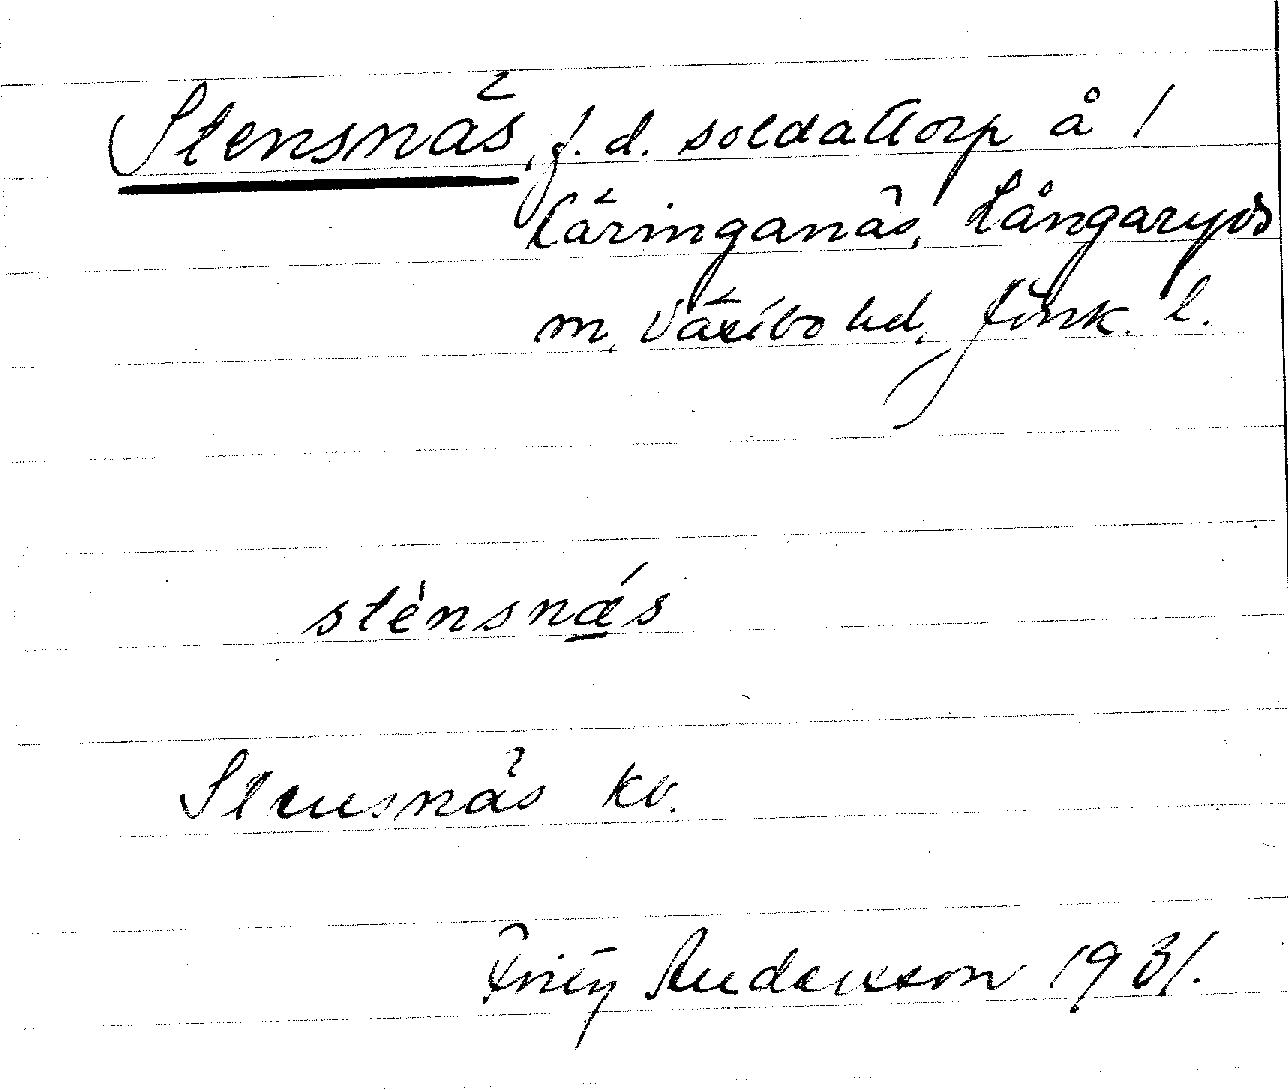 Stensnäs, f. d. soldattorp å 1
Käringanäs, Långaryds
m, Västbo hd, Jönk. l.
stènsnǽs
Stensnäs kv.
Fritz Andersson 1931.